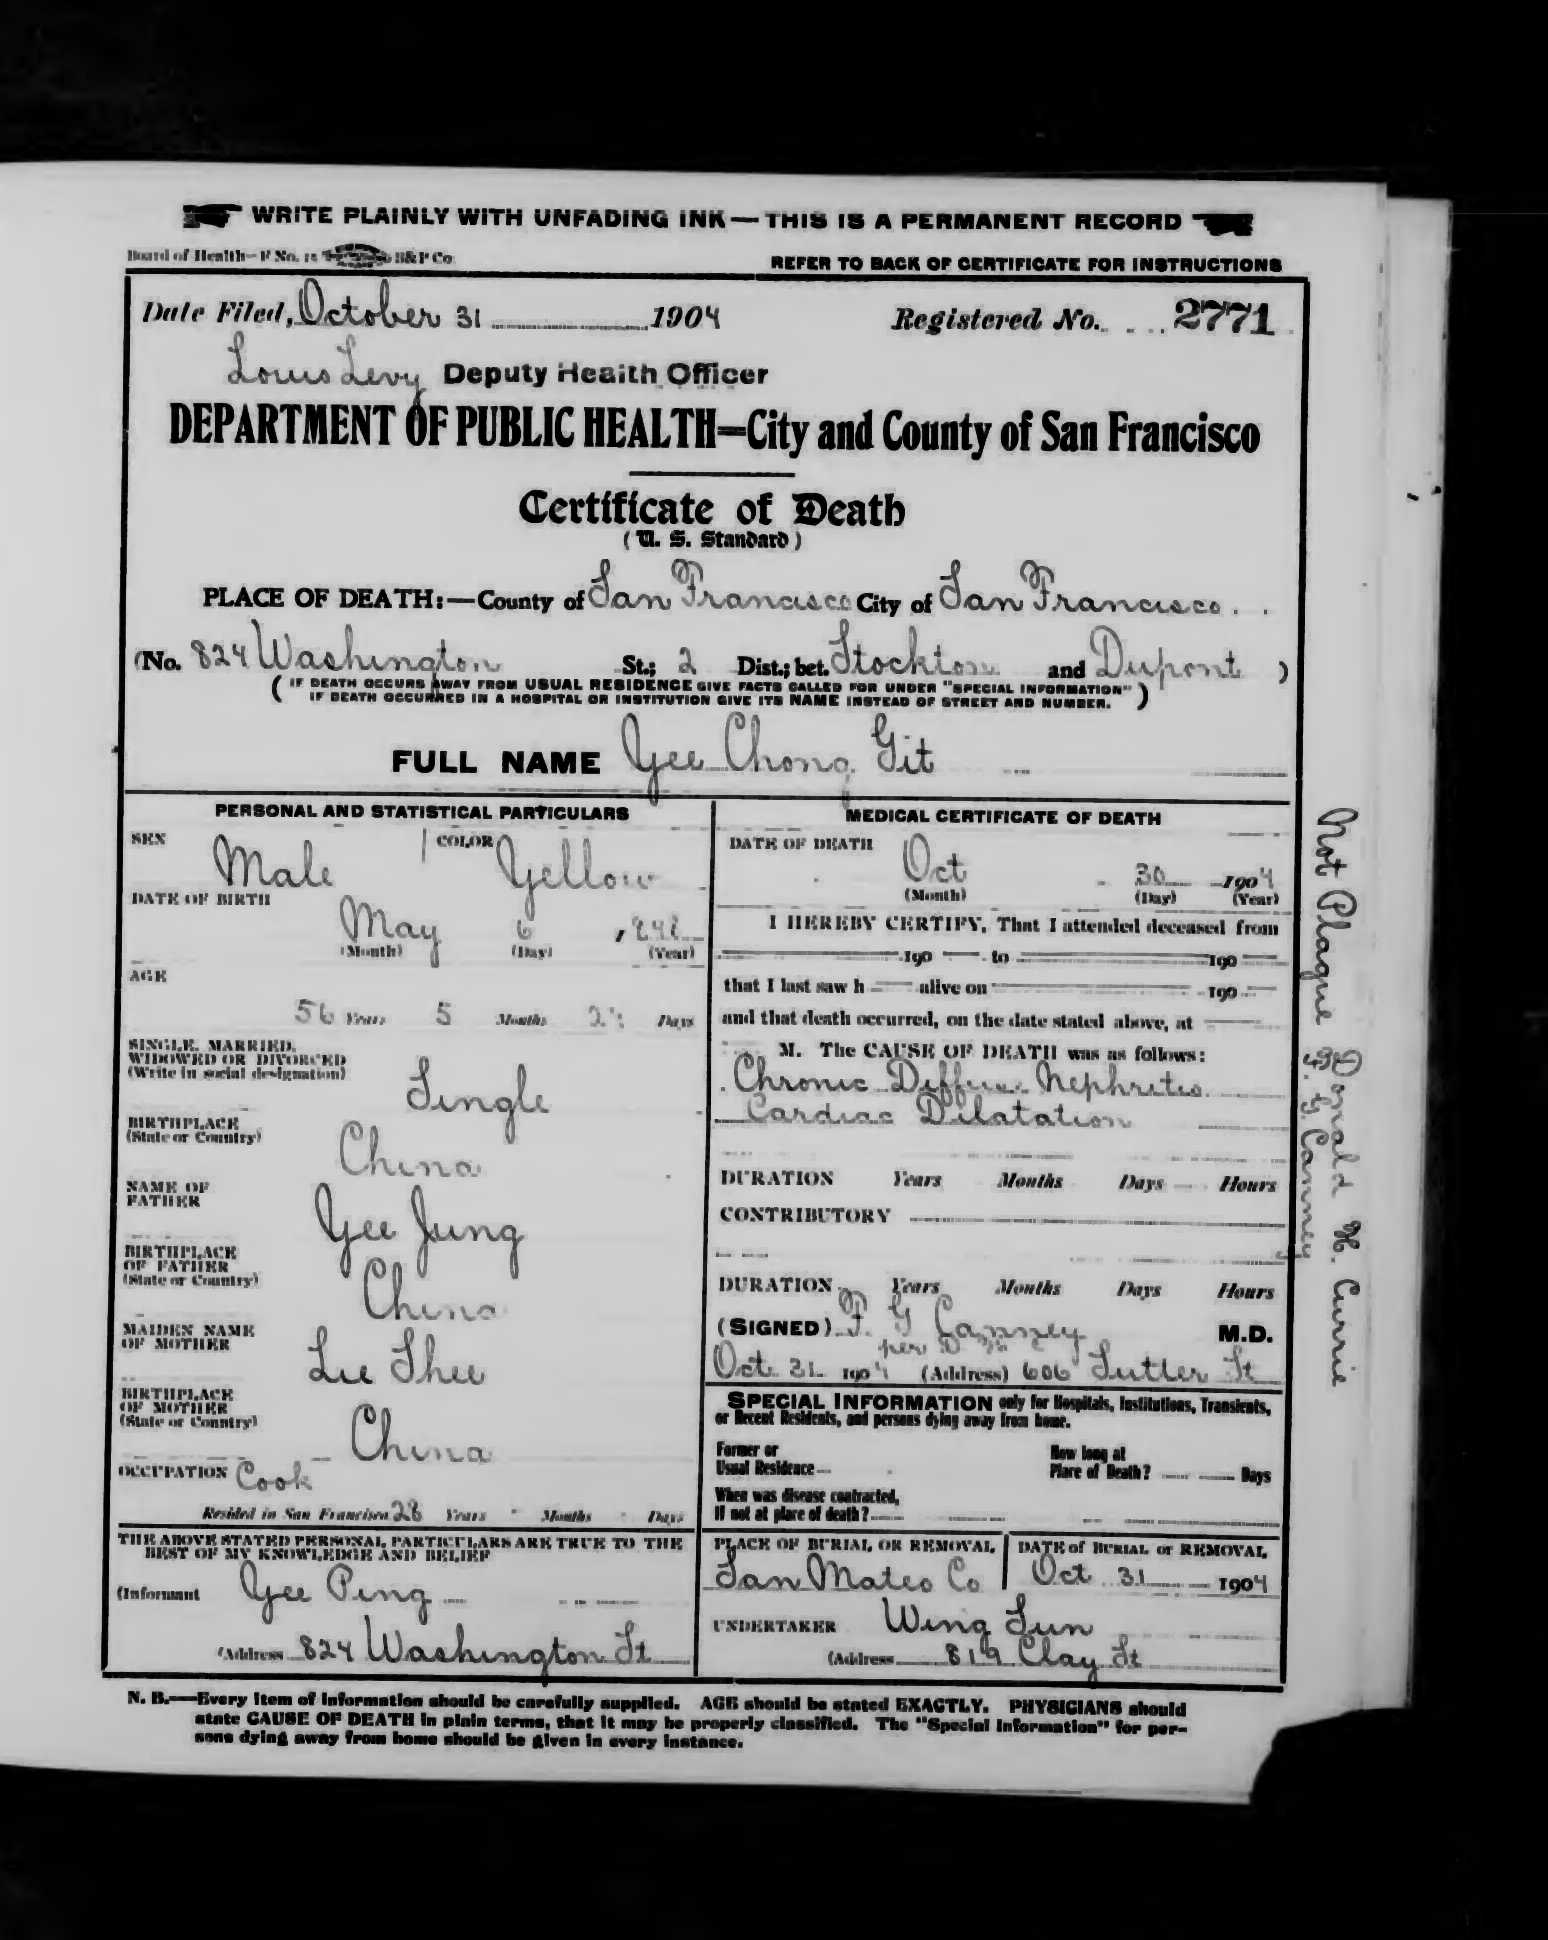 WRITE PLAINLY WITH UNFADING INK — THIS IS A PERMANENT RECORD
Board of Health—F No. 15 B&P Co.
REFER TO BACK OF CERTIFICATE FOR INSTRUCTIONS
Date Filed, October 31 1904 Registered No. 2771
Louis Levy Deputy Health Officer
DEPARTMENT OF PUBLIC HEALTH=City and County of San Francisco
Certificate of Death
(U. S. Standard)
PLACE OF DEATH:—County of San Francisco City of San Francisco
(No. 824 Washington St.; 2 Dist.; bet. Stockton and Dupont )
( IF DEATH OCCURS AWAY FROM USUAL RESIDENCE GIVE FACTS CALLED FOR UNDER "SPECIAL INFORMATION"
IF DEATH OCCURRED IN A HOSPITAL OR INSTITUTION GIVE ITS NAME INSTEAD OF STREET AND NUMBER. )
FULL NAME Yee Chong Git
PERSONAL AND STATISTICAL PARTICULARS
SEX Male COLOR Yellow
DATE OF BIRTH
May 6
(Month) (Day) (Year)
AGE
56 Years 5 Months Days
SINGLE, MARRIED,
WIDOWED OR DIVORCED
(Write in social designation)
Single
BIRTHPLACE
(State or Country)
China
NAME OF
FATHER
Yee Jung
BIRTHPLACE
OF FATHER
(State or Country)
China
MAIDEN NAME
OF MOTHER
Lee Shee
BIRTHPLACE
OF MOTHER
(State or Country)
China
OCCUPATION Cook
Resided in San Francisco 28 Years Months Days
THE ABOVE STATED PERSONAL PARTICULARS ARE TRUE TO THE
BEST OF MY KNOWLEDGE AND BELIEF
(Informant Yee Ping
(Address 824 Washington St
MEDICAL CERTIFICATE OF DEATH
DATE OF DEATH
Oct 30 1904
(Month) (Day) (Year)
I HEREBY CERTIFY, That I attended deceased from
190 to 190
that I last saw h alive on 190
and that death occurred, on the date stated above, at
M. The CAUSE OF DEATH was as follows:
Chronic Diffuse Nephritis
Cardiac Dilatation
DURATION Years Months Days Hours
CONTRIBUTORY
DURATION Years Months Days Hours
(SIGNED) F. G Canney M.D.
per D
Oct 31 1904 (Address) 606 Sutter St
SPECIAL INFORMATION only for Hospitals, Institutions, Transients,
or Recent Residents, and persons dying away from home.
Former or
Usual Residence
How long at
Place of Death? Days
When was disease contracted,
If not at place of death?
PLACE OF BURIAL OR REMOVAL
San Mateo Co
DATE of BURIAL or REMOVAL
Oct 31 1904
UNDERTAKER Wing Sun
(Address 819 Clay St
N. B.—Every item of information should be carefully supplied. AGE should be stated EXACTLY. PHYSICIANS should
state CAUSE OF DEATH in plain terms, that it may be properly classified. The "Special Information" for per-
sons dying away from home should be given in every instance.
Not Plague Donald H. Currie
F. G. Canney